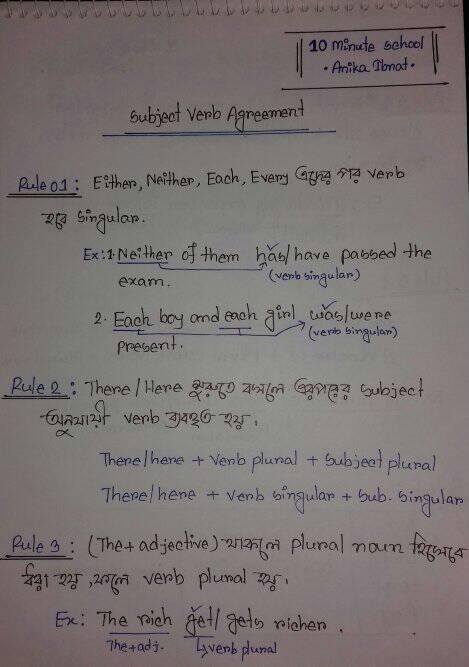 10 Minute School
• Anika Ibnat •
Subject Verb Agreement
Rule 01: Either, Neither, Each, Every এদের পর verb
হবে singular.
Ex: 1. Neither of them has/have passed the
(verb singular)
exam.
2. Each boy and each girl was/were
(verb singular)
present.
Rule 2: There/Here শুরুতে বসলে এরপরের subject
অনুযায়ী verb ব্যবহৃত হয়।
There/here + verb plural + subject plural
There/here + verb singular + sub. singular
Rule 3: (The + adjective) থাকলে plural noun হিসেবে
ধরা হয়, ফলে verb plural হয়।
Ex: The rich get/gets richer.
The+adj. ↳verb plural